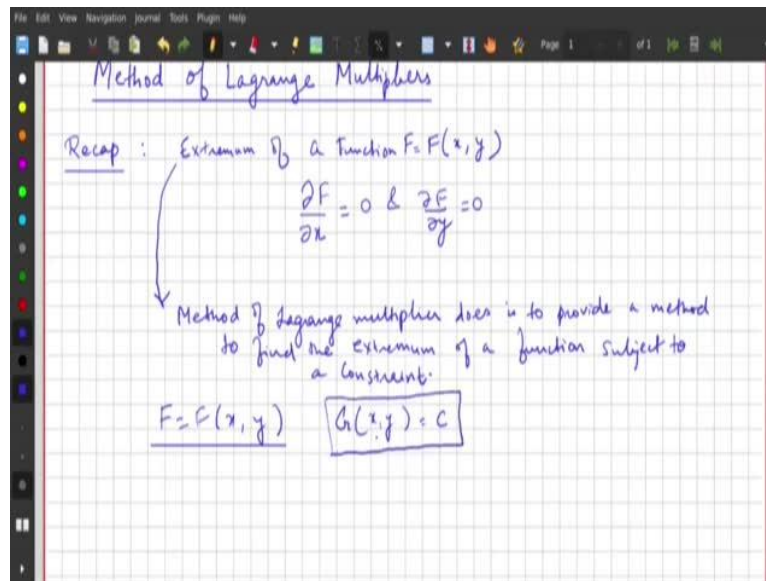 File Edit View Navigation Journal Tools Plugin Help
Page 1 of 1
Method of Lagrange Multipliers
Recap : Extremum of a Function F = F(x, y)
∂F/∂x = 0 & ∂F/∂y = 0
Method of Lagrange multiplier does is to provide a method
to find the extremum of a function subject to
a constraint.
F = F(x, y) G(x, y) = C